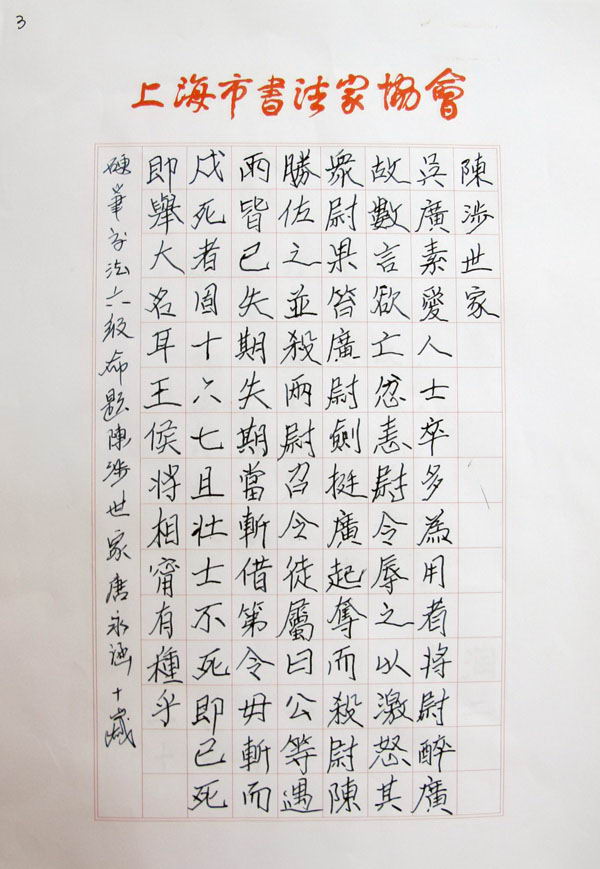 3
上海市書法家協會
陳涉世家
吳廣素愛人士卒多為用者將尉醉廣
故數言欲亡忿恚尉令辱之以激怒其
衆尉果笞廣尉劍挺廣起奪而殺尉陳
勝佐之並殺兩尉召令徒屬曰公等遇
雨皆已失期失期當斬借第令毋斬而
戍死者固十六七且壯士不死即已死
即舉大名耳王侯將相甯有種乎
硬筆書法六級命題陳涉世家唐永涵十歲